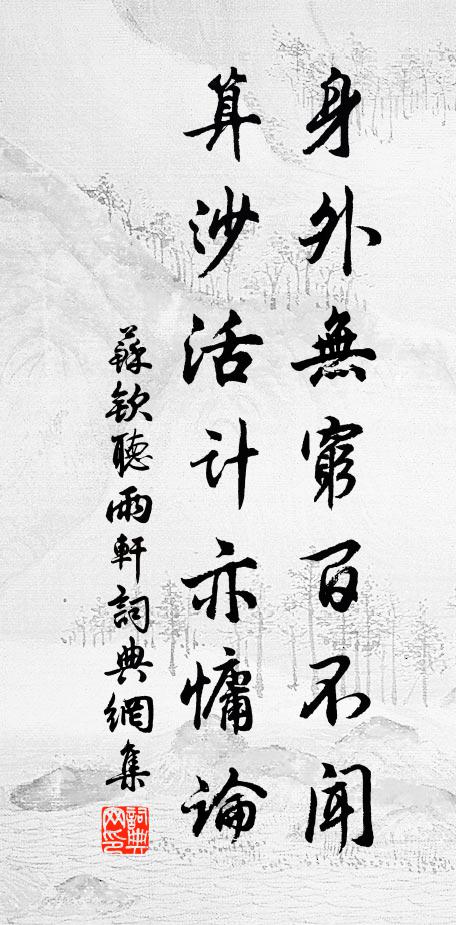 身外無窮百不聞
算沙活計亦慵論
蘇欽聽雨軒詞典網集
詞典網印